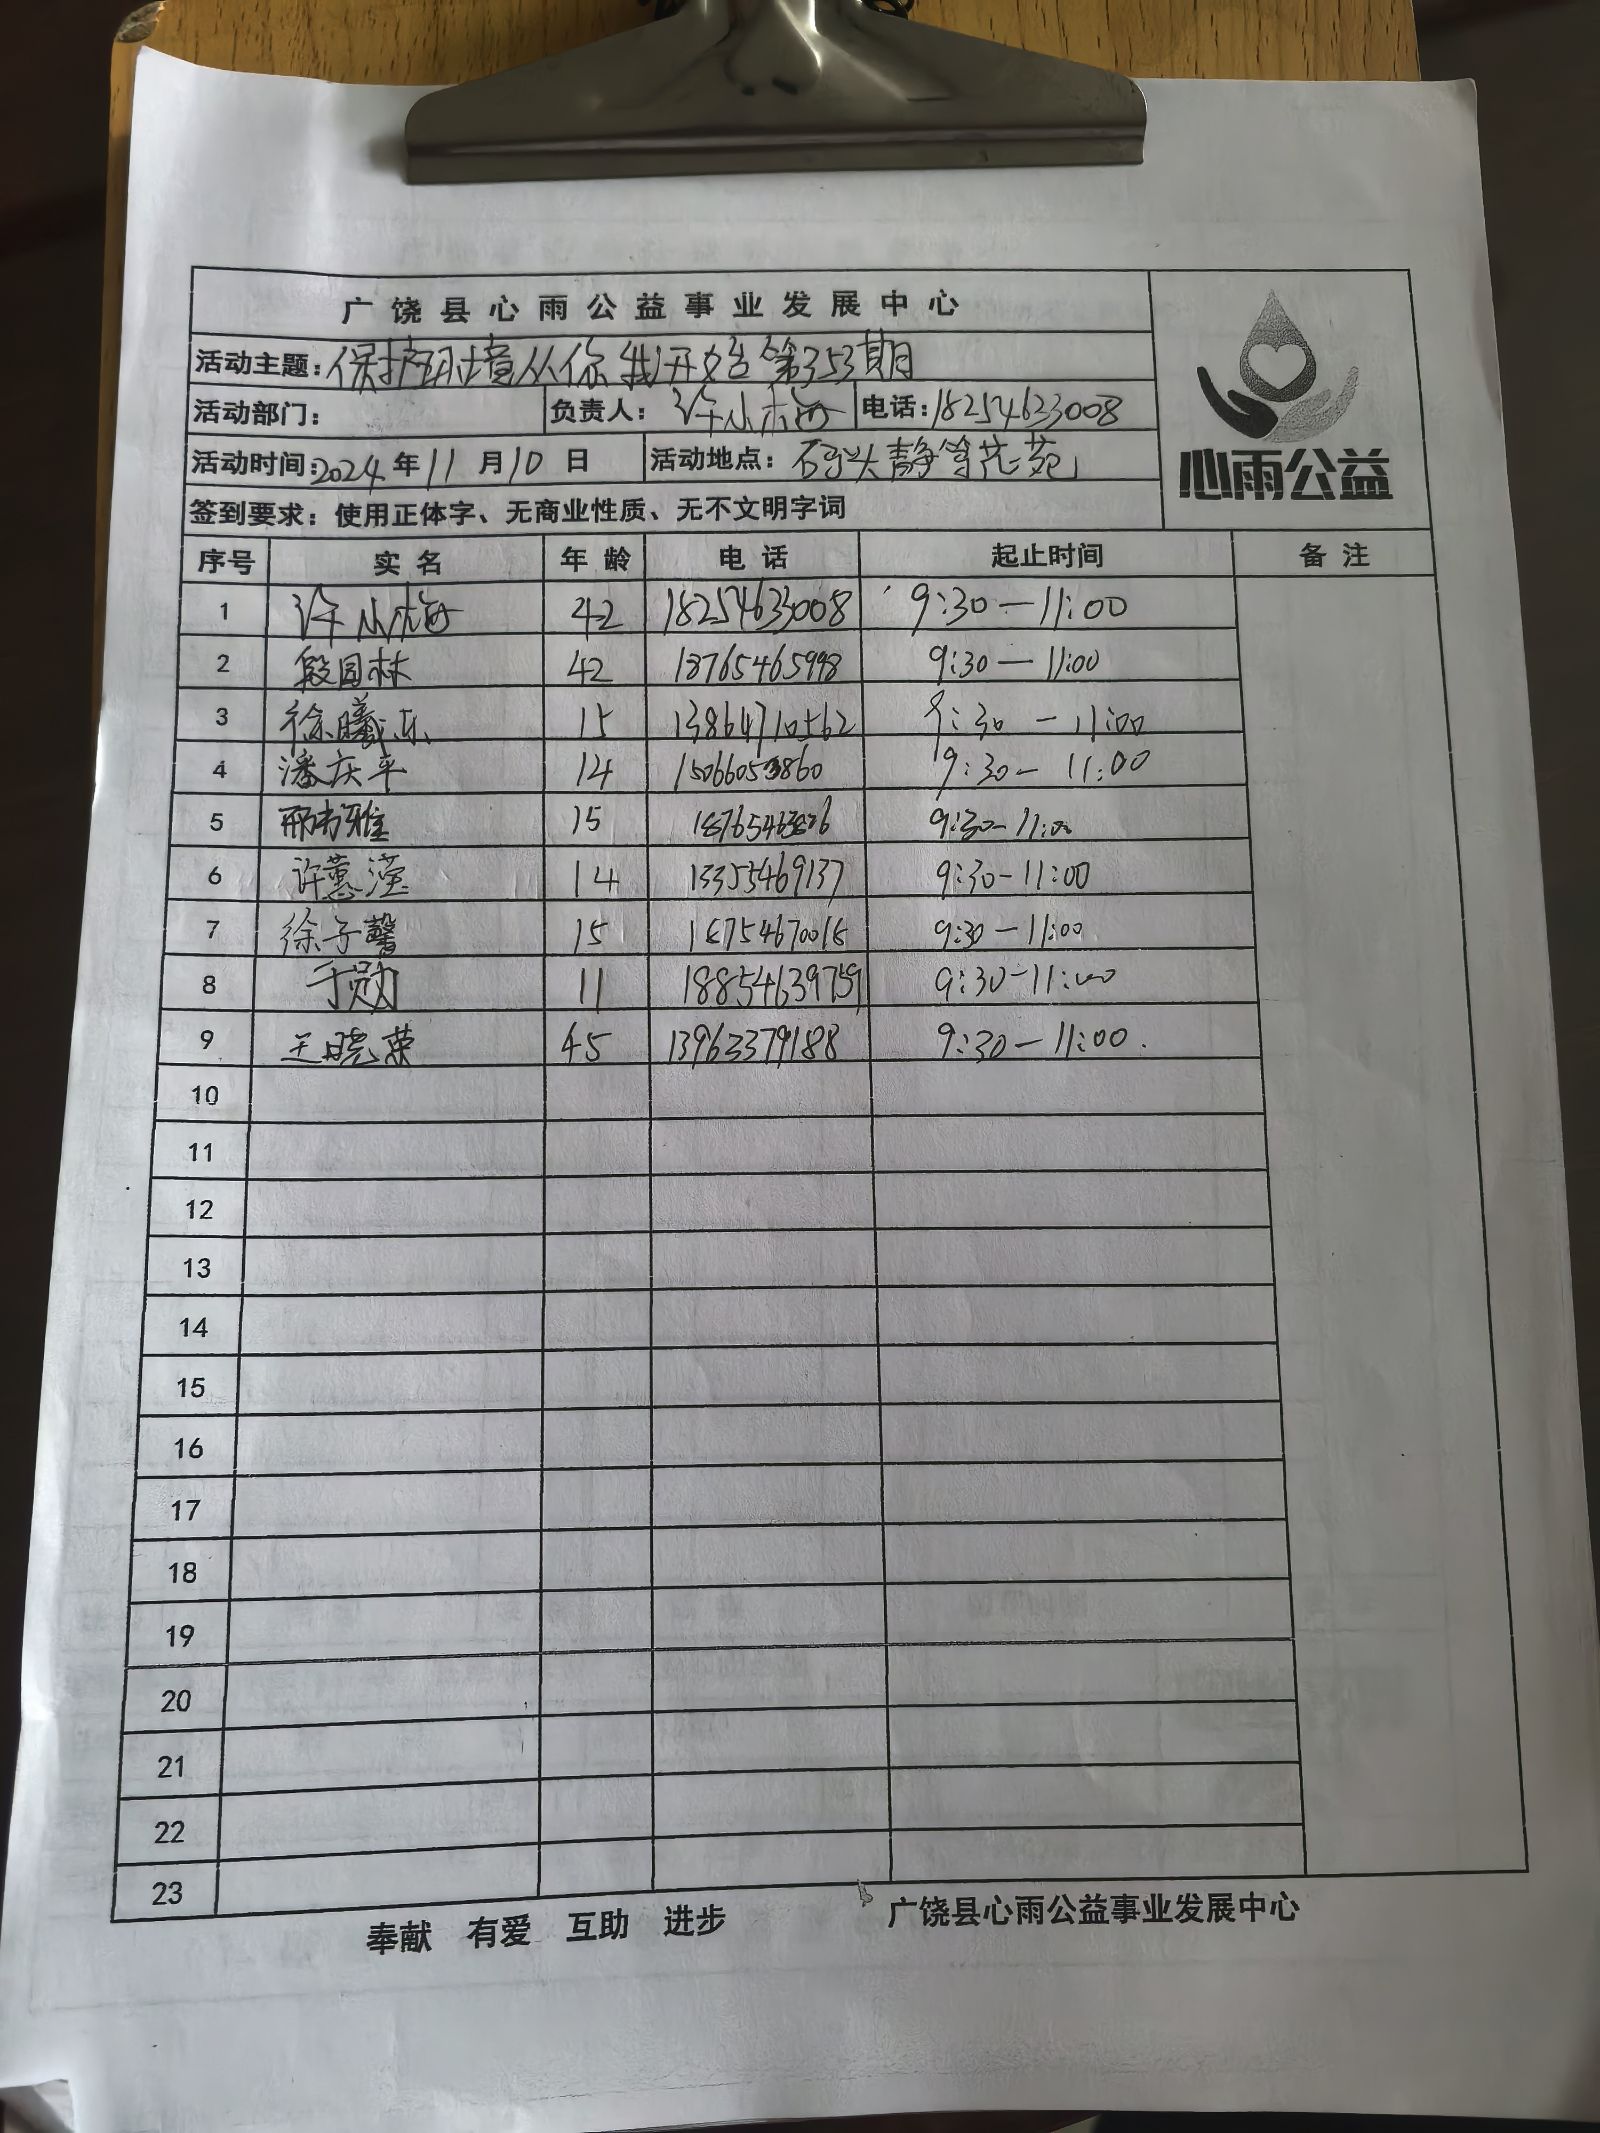 广饶县心雨公益事业发展中心
活动主题：保护环境从你我开始第353期
活动部门： 负责人：许小梅 电话：18254633008
活动时间：2024年11月10日 活动地点：码头静等花苑
心雨公益
签到要求：使用正体字、无商业性质、无不文明字词
序号 实名 年龄 电话 起止时间 备注
1 许小梅 42 18254633008 9:30—11:00
2 段国林 42 18765465998 9:30—11:00
3 徐曦东 15 13864710562 9:30—11:00
4 潘庆平 14 15066053860 9:30—11:00
5 邢书雅 15 9:30-11:00
6 许蕙滢 14 13355469137 9:30-11:00
7 徐子馨 15 9:30—11:00
8 于勋 11 18854639759 9:30-11:00
9 王晓荣 45 13963379188 9:30—11:00.
10
11
12
13
14
15
16
17
18
19
20
21
22
23
奉献 有爱 互助 进步 广饶县心雨公益事业发展中心